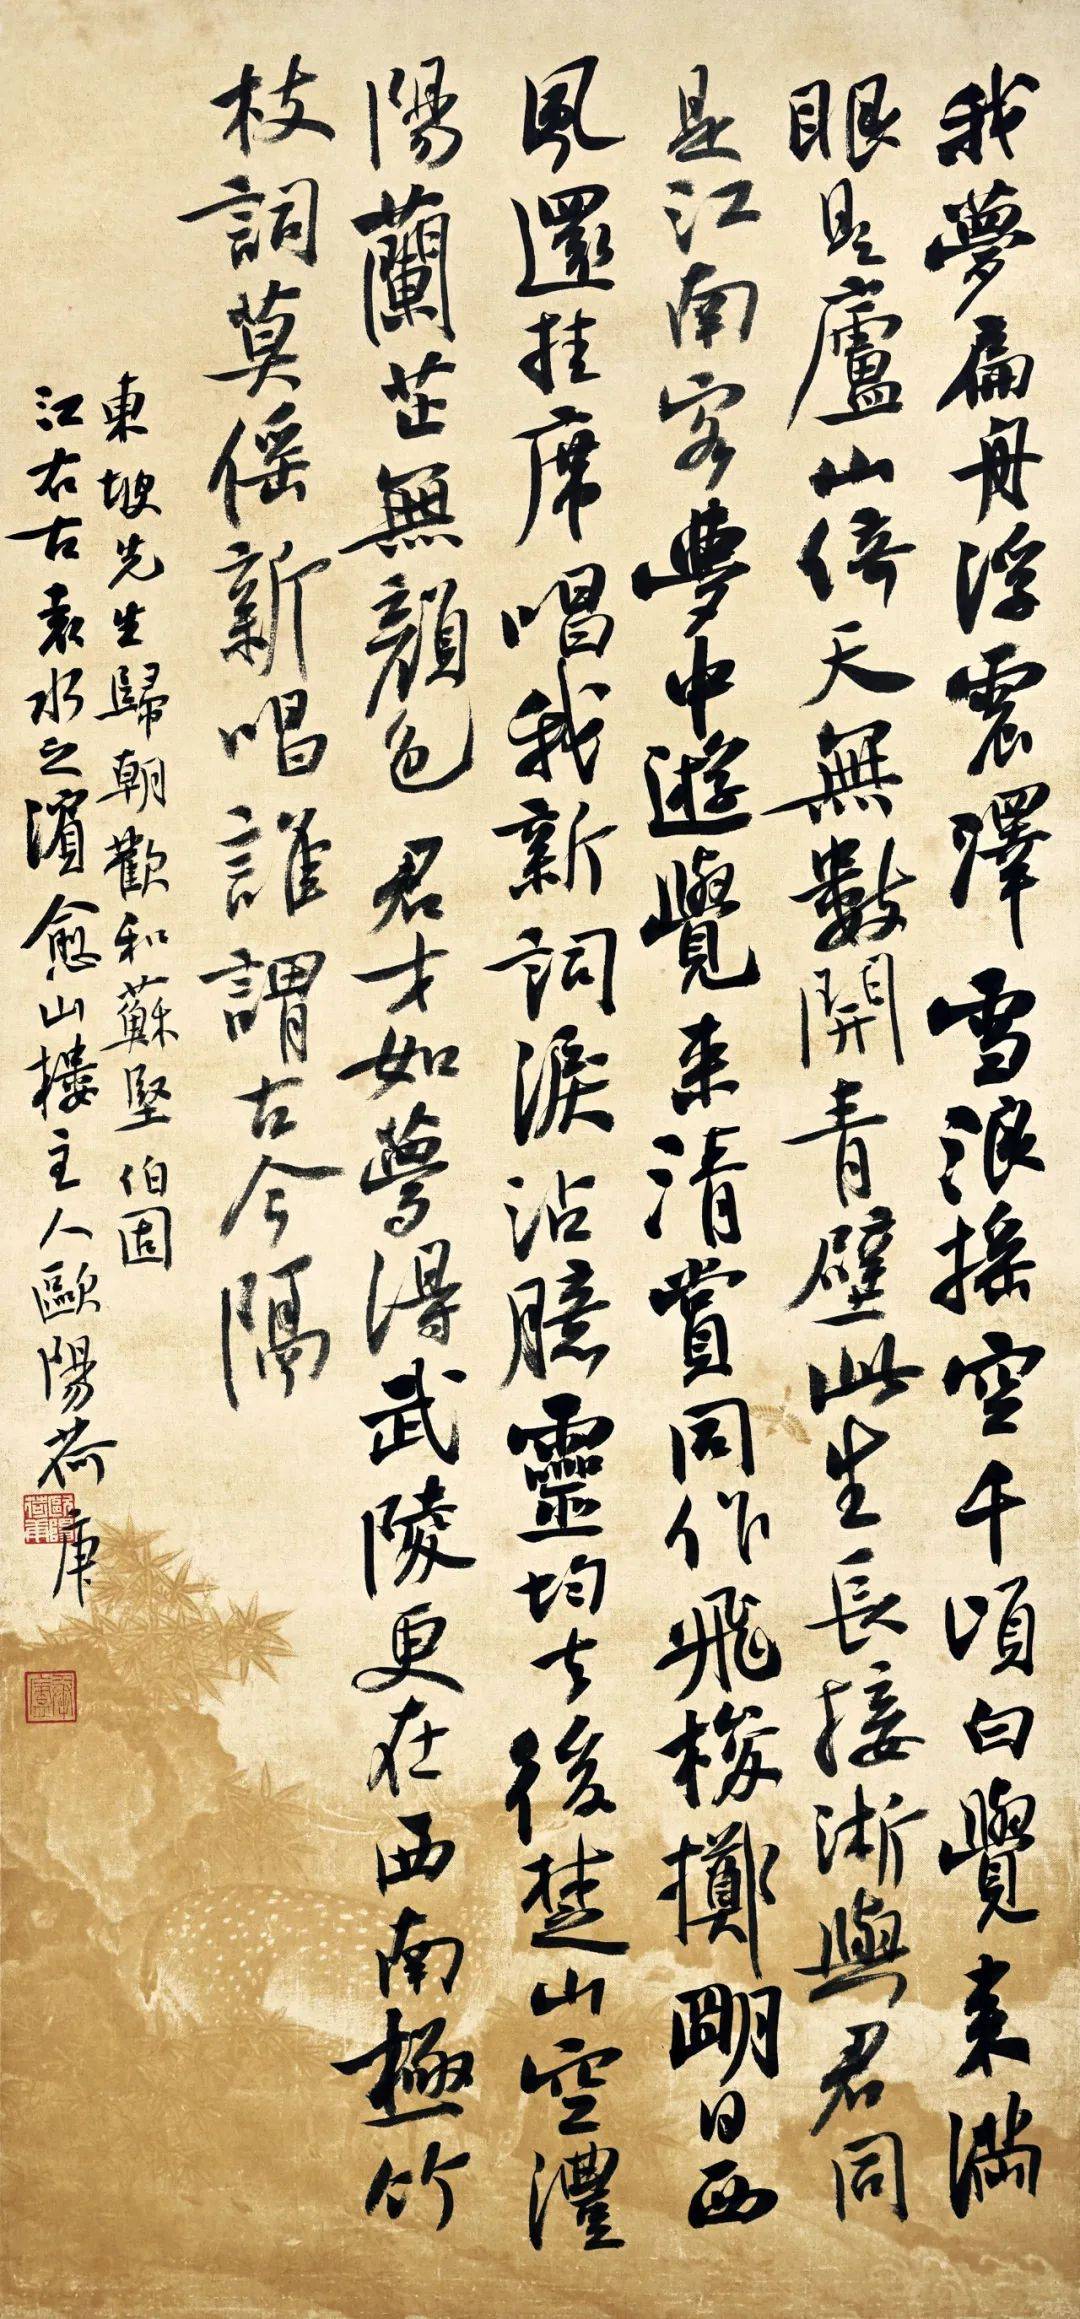 我夢扁舟浮震澤雪浪搖空千頃白覺來滿
眼是廬山倚天無數開青壁此生長接淅與君同
是江南客夢中遊覺來清賞同作飛梭擲明日西
風還挂席唱我新詞淚沾臆靈均去後楚山空澧
陽蘭芷無顏色君才如夢得武陵更在西南極竹
枝詞莫傜新唱誰謂古今隔
東坡先生歸朝歡和蘇堅伯固
江右古袁水之濱愈山樓主人歐陽荷庚